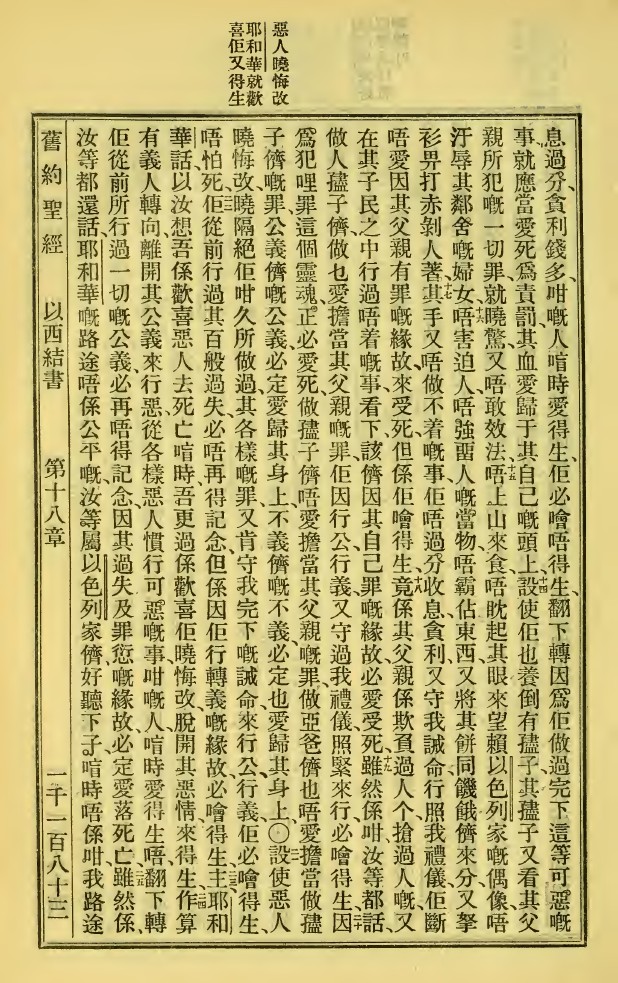 惡人曉悔改
耶和華就歡
喜佢又得生
息過分、貪利錢多、咁嘅人喑時愛得生、佢必噲唔得生、翻下轉因爲佢做過完下這等可惡嘅
事、就應當愛死爲責罰、其血愛歸于其自己嘅頭上、十四設使佢也養倒有孻子、其孻子又看其父
親所犯嘅一切罪、就曉驚、又唔敢效法、十五唔上山來食、唔眈起其眼來望賴以色列家嘅偶像、唔
汙辱其鄰舍嘅婦女、十六唔害迫人、唔強畱人嘅當物、唔霸佔東西、又將其餅同饑餓儕來分、又拏
衫畀打赤剝人著、十七其手又唔做不着嘅事、佢唔過分收息、貪利、又守我誡命、行照我禮儀、佢斷
唔愛因其父親有罪嘅緣故、來受死、但係佢噲得生、十八竟係其父親係欺負過人个、搶過人嘅、又
在其子民之中行過唔着嘅事、看下、該儕因其自己罪嘅緣故、必愛受死、十九雖然係咁、汝等都話、
做人孻子儕、做乜愛擔當其父親嘅罪、佢因行公行義、又守過我禮儀、照緊來行、必噲得生、二十因
爲犯哩罪、這個靈魂、正必愛死、做孻子儕、唔愛擔當其父親嘅罪、做亞爸儕、也唔愛擔當做孻
子儕嘅罪、公義儕嘅公義、必定愛歸其身上、不義儕嘅不義、必定也愛歸其身上、〇二一設使惡人
曉悔改、曉隔絕佢咁久所做過、其各樣嘅罪、又肯守我完下嘅誡命、來行公行義、佢必噲得生、
唔怕死、二二佢從前行過其百般過失、必唔再得記念、但係因佢行轉義嘅緣故、必噲得生、二三主耶和
華話、以汝想吾係歡喜惡人去死亡喑時、吾更過係歡喜佢曉悔改、脫開其惡情、來得生、二四作算
有義人轉向離開其公義、來行惡、從各樣惡人慣行可惡嘅事、咁嘅人喑時愛得生唔、翻下轉
佢從前所行過一切嘅公義、必再唔得記念、因其過失及罪愆嘅緣故、必定愛落死亡、二五雖然係、
汝等都還話、耶和華嘅路途、唔係公平嘅、汝等屬以色列家儕、好聽下子、喑時唔係咁、我路途
舊約聖經　以西結書　第十八章　一千一百八十三